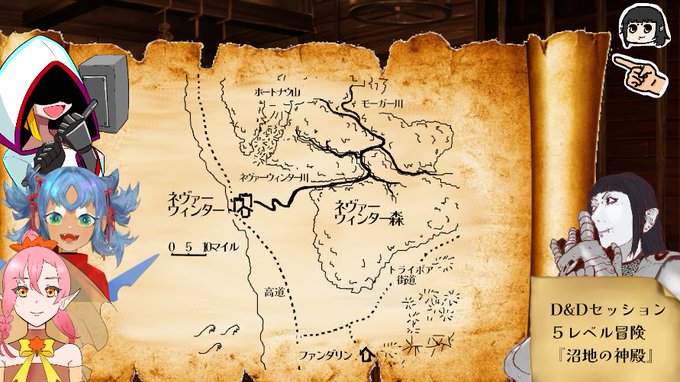 ポートナウ山
モーガー川
ネヴァーウィンター川
ネヴァー
ウィンター
ネヴァー
ウィンター森
0 5 10マイル
トライボア
街道
高道
ファンダリン
D&Dセッション
5レベル冒険
『沼地の神殿』